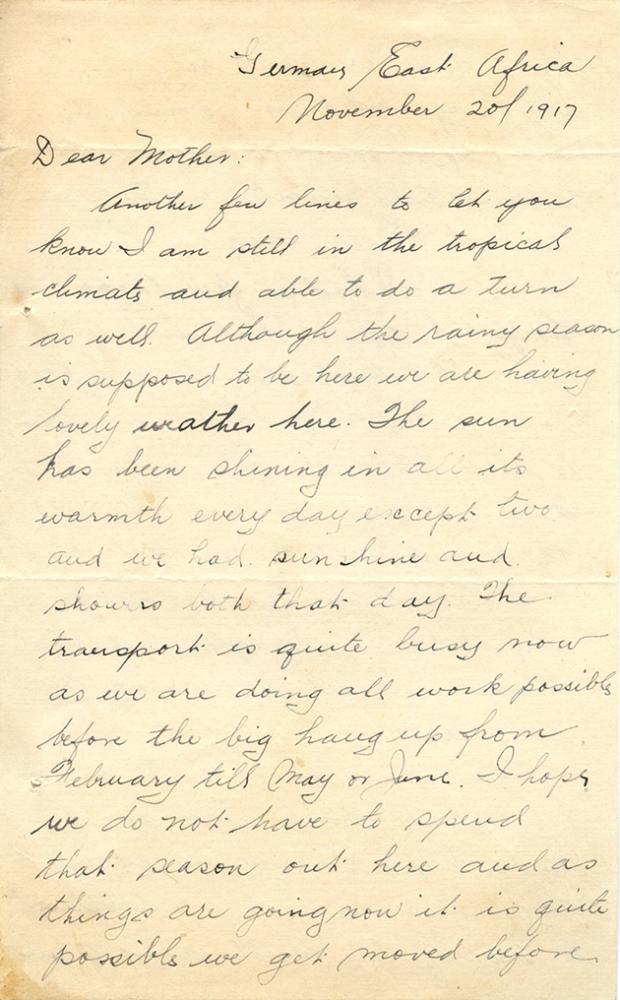 German East Africa
November 20/1917
Dear Mother:
Another few lines to let you
know I am still in the tropical
climate and able to do a turn
as well. Although the rainy season
is supposed to be here we are having
lovely weather here. The sun
has been shining in all its
warmth every day except two
and we had sunshine and
showers both that day. The
transport is quite busy now
as we are doing all work possible
before the big hang up from
February till May or June. I hope
we do not have to spend
that season out here and as
things are going now it is quite
possible we get moved before